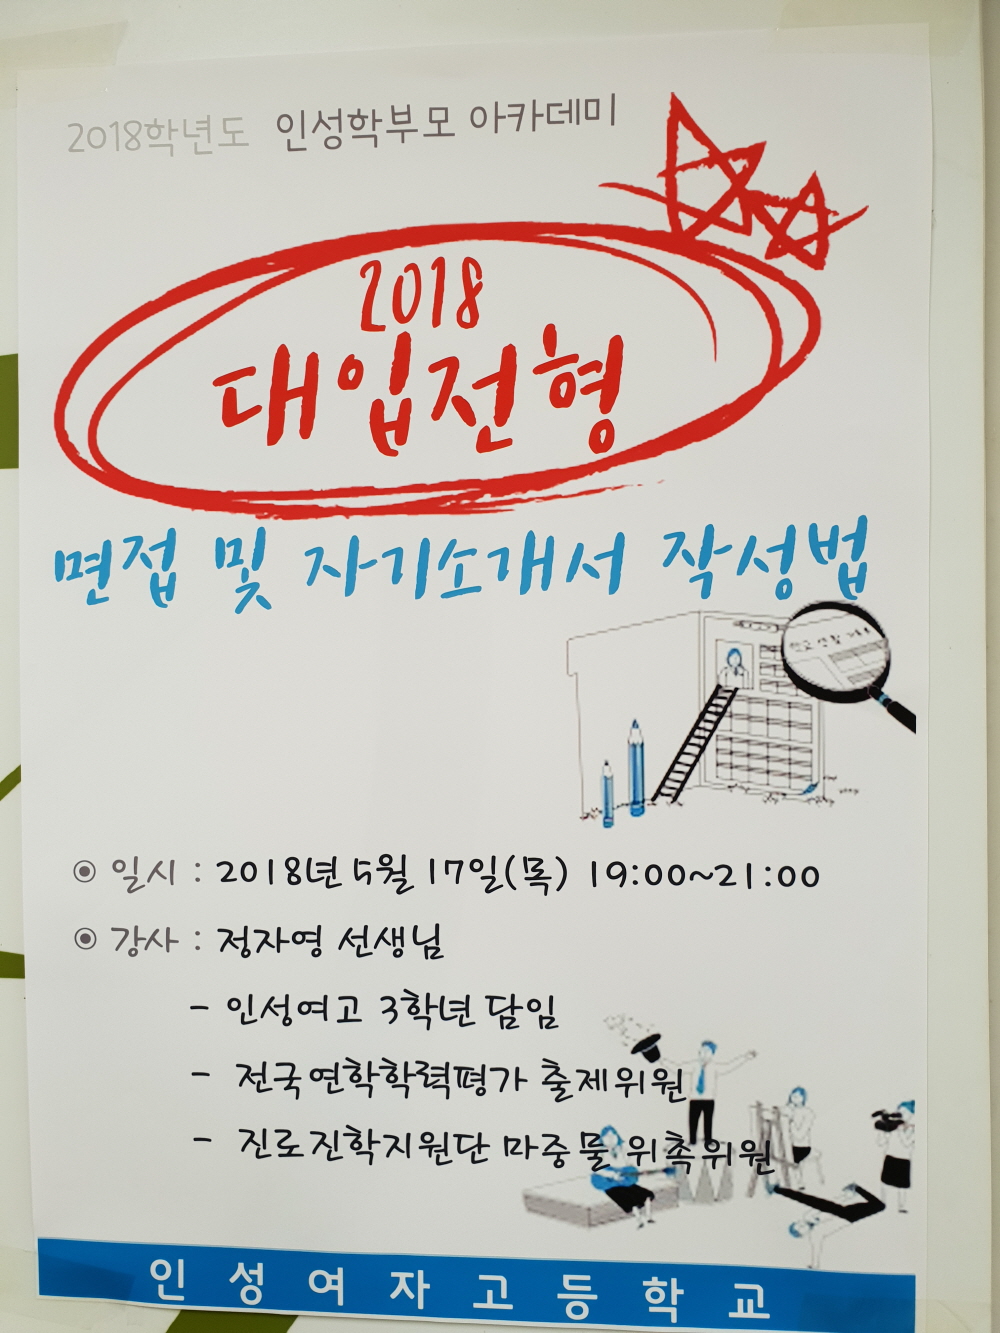 2018학년도 인성학부모 아카데미
2018
대입전형
면접 및 자기소개서 작성법
◉ 일시 : 2018년 5월 17일(목) 19:00~21:00
◉ 강사 : 정자영 선생님
- 인성여고 3학년 담임
- 전국연학학력평가 출제위원
- 진로진학지원단 마중물 위촉위원
인성여자고등학교